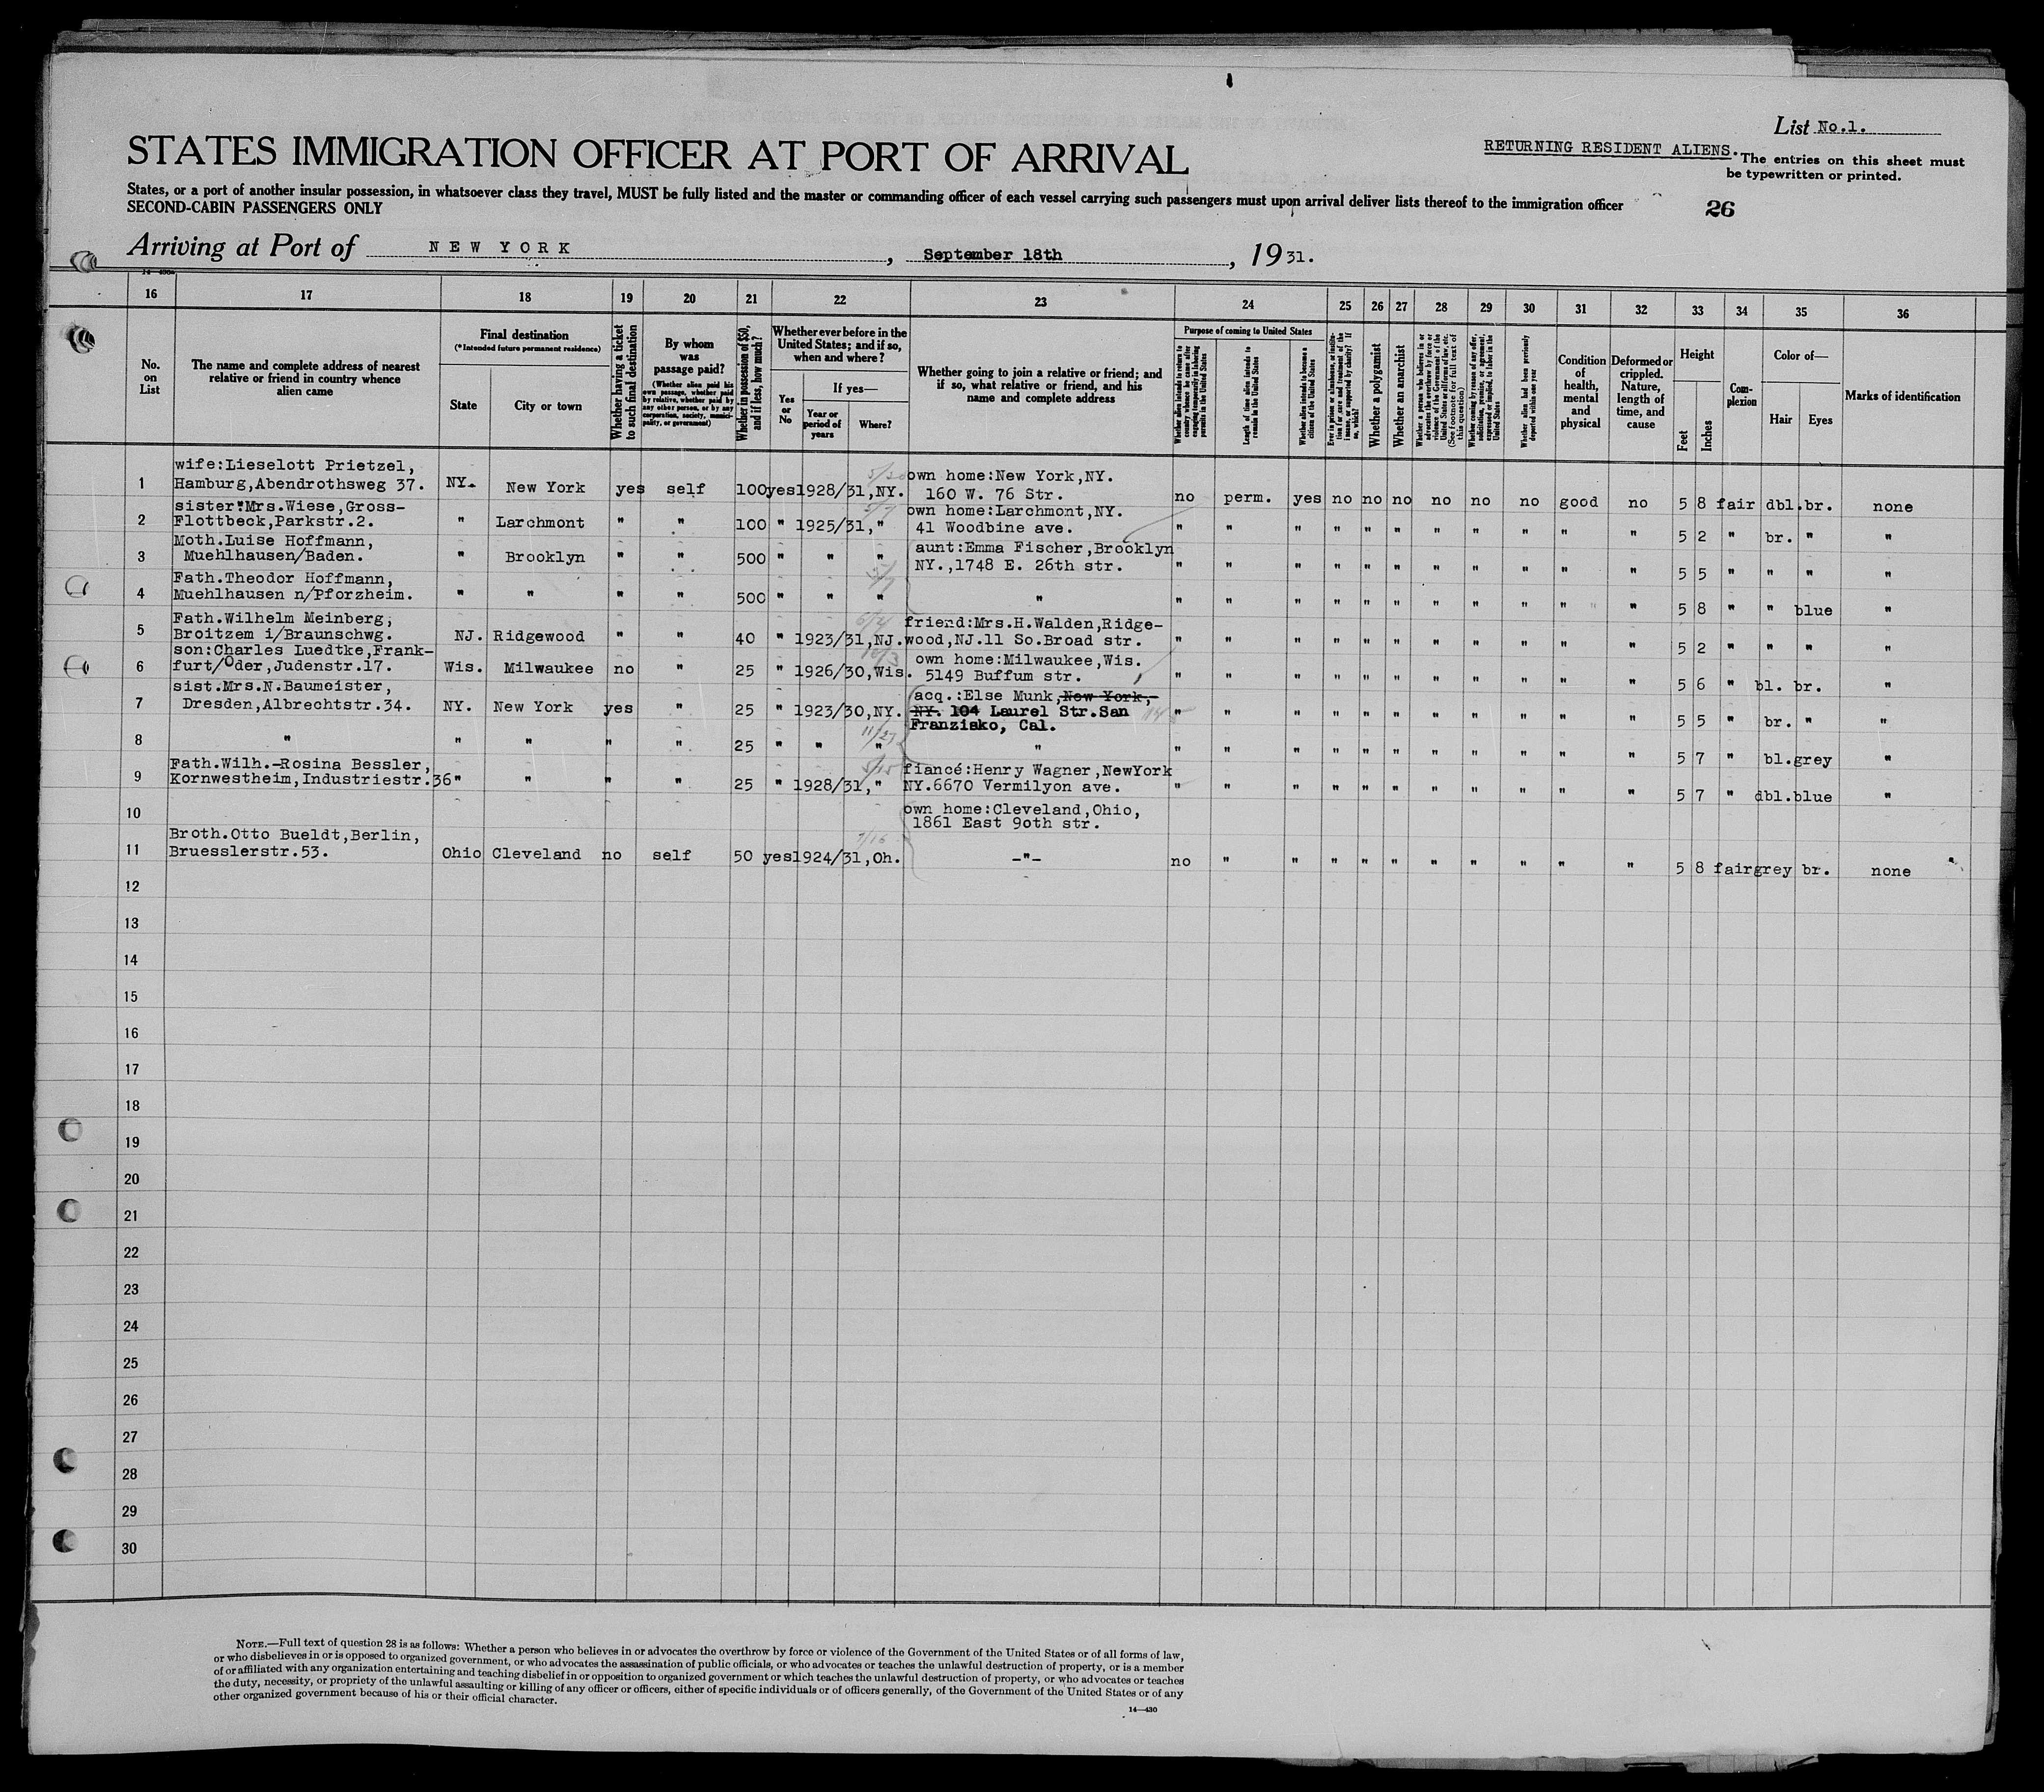 List No.1.
STATES IMMIGRATION OFFICER AT PORT OF ARRIVAL
RETURNING RESIDENT ALIENS.
The entries on this sheet must
be typewritten or printed.
States, or a port of another insular possession, in whatsoever class they travel, MUST be fully listed and the master or commanding officer of each vessel carrying such passengers must upon arrival deliver lists thereof to the immigration officer
SECOND-CABIN PASSENGERS ONLY
26
Arriving at Port of NEW YORK, September 18th, 1931.
16 17 18 19 20 21 22 23 24 25 26 27 28 29 30 31 32 33 34 35 36
No. on List
The name and complete address of nearest relative or friend in country whence alien came
Final destination
(*Intended future permanent residence)
State
City or town
Whether having a ticket to such final destination
By whom was passage paid?
(Whether alien paid his own passage, whether paid by relative, whether paid by any other person, or by any corporation, society, municipality, or government)
Whether in possession of $50, and if less, how much?
Whether ever before in the United States; and if so, when and where?
Yes or No
If yes—
Year or period of years
Where?
Whether going to join a relative or friend; and if so, what relative or friend, and his name and complete address
Purpose of coming to United States
Length of time alien intends to remain in the United States
Whether alien intends to become a citizen of the United States
Whether a polygamist
Whether an anarchist
Whether alien had been previously deported within one year
Condition of health, mental and physical
Deformed or crippled. Nature, length of time, and cause
Height
Feet
Inches
Com-plexion
Color of—
Hair
Eyes
Marks of identification
1 wife:Lieselott Prietzel,
Hamburg,Abendrothsweg 37. NY. New York yes self 100 yes 1928/31,NY. own home:New York,NY.
160 W. 76 Str. no perm. yes no no no no no no good no 5 8 fair dbl. br. none
2 sister:Mrs.Wiese,Gross-
Flottbeck,Parkstr.2. " Larchmont " " 100 " 1925/31," own home:Larchmont,NY.
41 Woodbine ave. " " " " " " " " " " " 5 2 " br. " "
3 Moth.Luise Hoffmann,
Muehlhausen/Baden. " Brooklyn " " 500 " " " aunt:Emma Fischer,Brooklyn
NY.,1748 E. 26th str. " " " " " " " " " " " 5 5 " " " "
4 Fath.Theodor Hoffmann,
Muehlhausen n/Pforzheim. " " " " 500 " " " " " " " " " " " " " " " 5 8 " " blue "
5 Fath.Wilhelm Meinberg,
Broitzem i/Braunschwg. NJ. Ridgewood " " 40 " 1923/31,NJ. friend:Mrs.H.Walden,Ridge-
wood,NJ.11 So.Broad str. " " " " " " " " " " " 5 2 " " " "
6 son:Charles Luedtke,Frank-
furt/Oder,Judenstr.17. Wis. Milwaukee no " 25 " 1926/30,Wis. own home:Milwaukee,Wis.
5149 Buffum str. " " " " " " " " " " " 5 6 " bl. br. "
7 sist.Mrs.N.Baumeister,
Dresden,Albrechtstr.34. NY. New York yes " 25 " 1923/30,NY. acq.:Else Munk,New York,
NY. 104 Laurel Str.San
Franzisko, Cal. " " " " " " " " " " " 5 5 " br. " "
8 " " " " " 25 " " " " " " " " " " " " " " " 5 7 " bl. grey "
9 Fath.Wilh.-Rosina Bessler,
Kornwestheim,Industriestr.36 " " " " 25 " 1928/31," fiancé:Henry Wagner,NewYork
NY.6670 Vermilyon ave. " " " " " " " " " " " 5 7 " dbl. blue "
10 own home:Cleveland,Ohio,
1861 East 90th str.
11 Broth.Otto Bueldt,Berlin,
Bruesslerstr.53. Ohio Cleveland no self 50 yes 1924/31,Oh. -"- no " " " " " " " " " " 5 8 fair grey br. none
12
13
14
15
16
17
18
19
20
21
22
23
24
25
26
27
28
29
30
NOTE.—Full text of question 28 is as follows: Whether a person who believes in or advocates the overthrow by force or violence of the Government of the United States or of all forms of law,
or who disbelieves in or is opposed to organized government, or who advocates the assassination of public officials, or who advocates or teaches the unlawful destruction of property, or is a member
of or affiliated with any organization entertaining and teaching disbelief in or opposition to organized government or which teaches the unlawful destruction of property, or who advocates or teaches
the duty, necessity, or propriety of the unlawful assaulting or killing of any officer or officers, either of specific individuals or of officers generally, of the Government of the United States or of any
other organized government because of his or their official character.
14—430